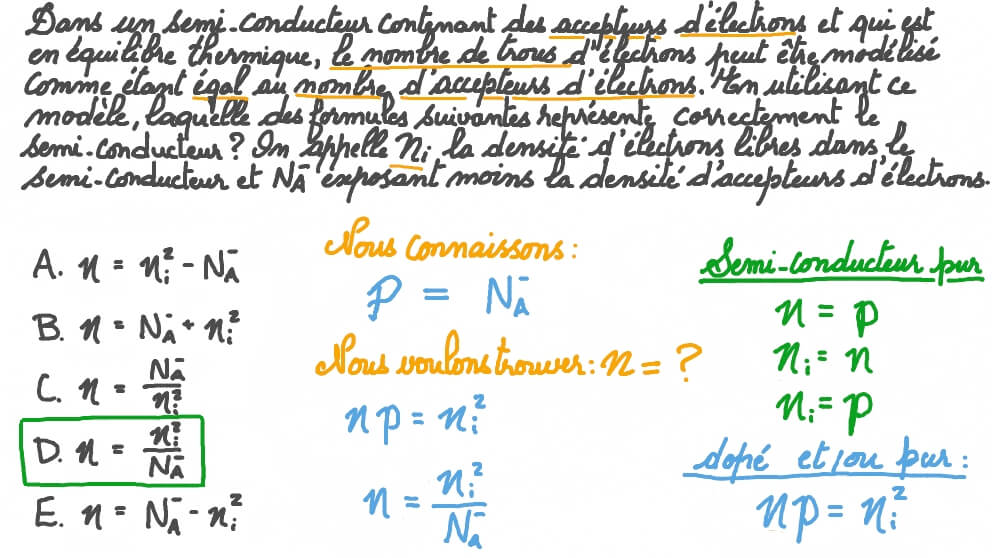 Dans un semi-conducteur contenant des accepteurs d'électrons et qui est
en équilibre thermique, le nombre de trous d'électrons peut être modélisé
comme étant égal au nombre d'accepteurs d'électrons. En utilisant ce
modèle, laquelle des formules suivantes représente correctement le
semi-conducteur ? On appelle nᵢ la densité d'électrons libres dans le
semi-conducteur et N_A⁻ exposant moins la densité d'accepteurs d'électrons.
A. n = nᵢ² - N_A⁻
B. n = N_A⁻ + nᵢ²
C. n = N_A⁻ / nᵢ²
D. n = nᵢ² / N_A⁻
E. n = N_A⁻ - nᵢ²
Nous connaissons :
p = N_A⁻
Nous voulons trouver : n = ?
np = nᵢ²
n = nᵢ² / N_a⁻
Semi-conducteur pur
n = p
nᵢ = n
nᵢ = p
dopé et/ou pur :
np = nᵢ²